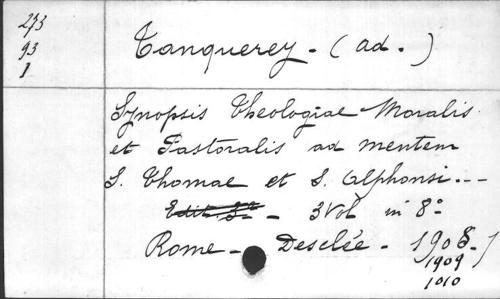 273
93
1
Tanquerey. (ad.)
Synopsis Theologiae Moralis
et Pastoralis ad mentem
S. Thomae et S. Alphonsi...
Edit 3a - 3 Vol in 8°
Rome - Desclée - 1908.
1909
1010